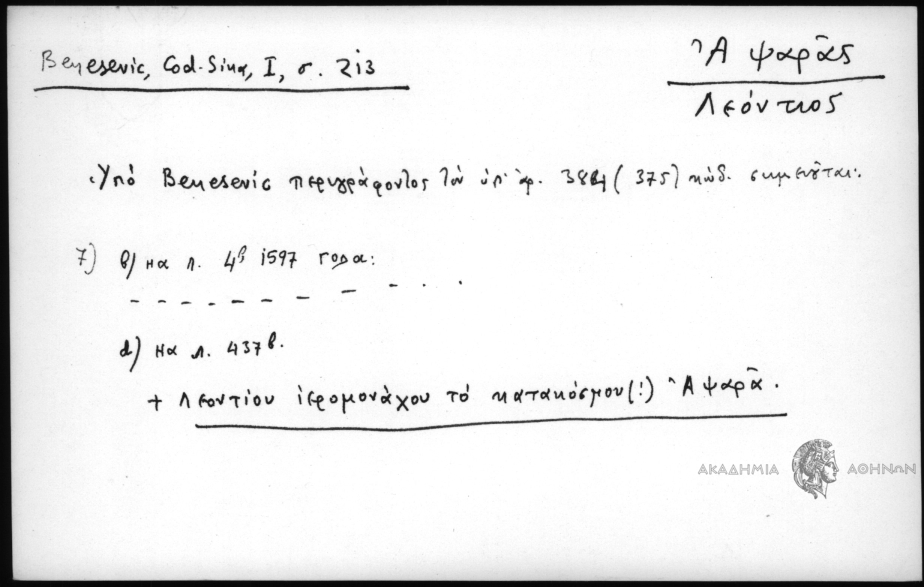 Benesenic, Cod-Sina, I, σ. 213
Ἀ ψαρᾶς
Λεόντιος
Ὑπό Benesenic περιγράφοντος τόν ὑπ' ἀρ. 384 (375) κώδ. σημειοῦται:
7) b) на л. 4в 1597 года:
- - - - - - - - - . .
d) на л. 437в.
+ Λεοντίου ἱερομονάχου τό κατακόσμου(!) Ἀψαρᾶ.
ΑΚΑΔΗΜΙΑ ΑΘΗΝΩΝ